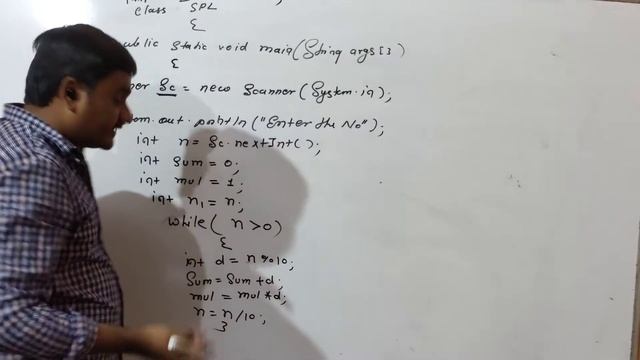 class SPL
{
public static void main(String args[])
{
Sc = new Scanner(System.in);
out.println("Enter the No");
int n = Sc.nextInt();
int sum = 0;
int mul = 1;
int n1 = n;
while( n>0)
{
int d = n%10;
Sum = Sum+d;
mul = mul*d;
n = n/10;
}